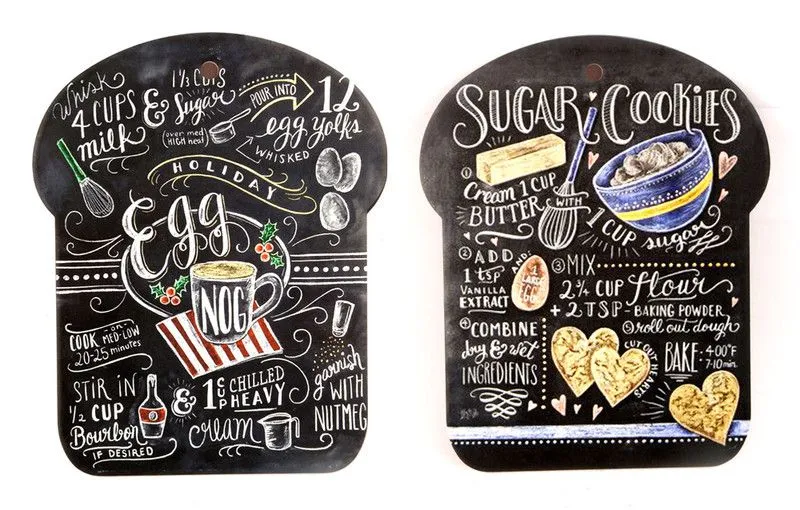 Whisk
4 CUPS
milk
&
1 1/3 CUPS
Sugar
(over med
HIGH heat)
POUR INTO
12
egg yolks
WHISKED
HOLIDAY
Egg
NOG
COOK on MED-LOW
20-25 minutes
STIR IN
1/2 CUP
Bourbon
IF DESIRED
&
1 CUP CHILLED
HEAVY
cream
garnish
WITH
NUTMEG
SUGAR COOKIES
① Cream 1 CUP
BUTTER
WITH
1 CUP sugar
② ADD
1 tsp
VANILLA
EXTRACT
AND
1
LARGE
EGG
③ MIX
2 3/4 CUP flour
+ 2 TSP - BAKING POWDER
④ COMBINE
dry & wet
INGREDIENTS
⑤ roll out dough
CUT OUT HEARTS
BAKE: 400°F
7-10 min.